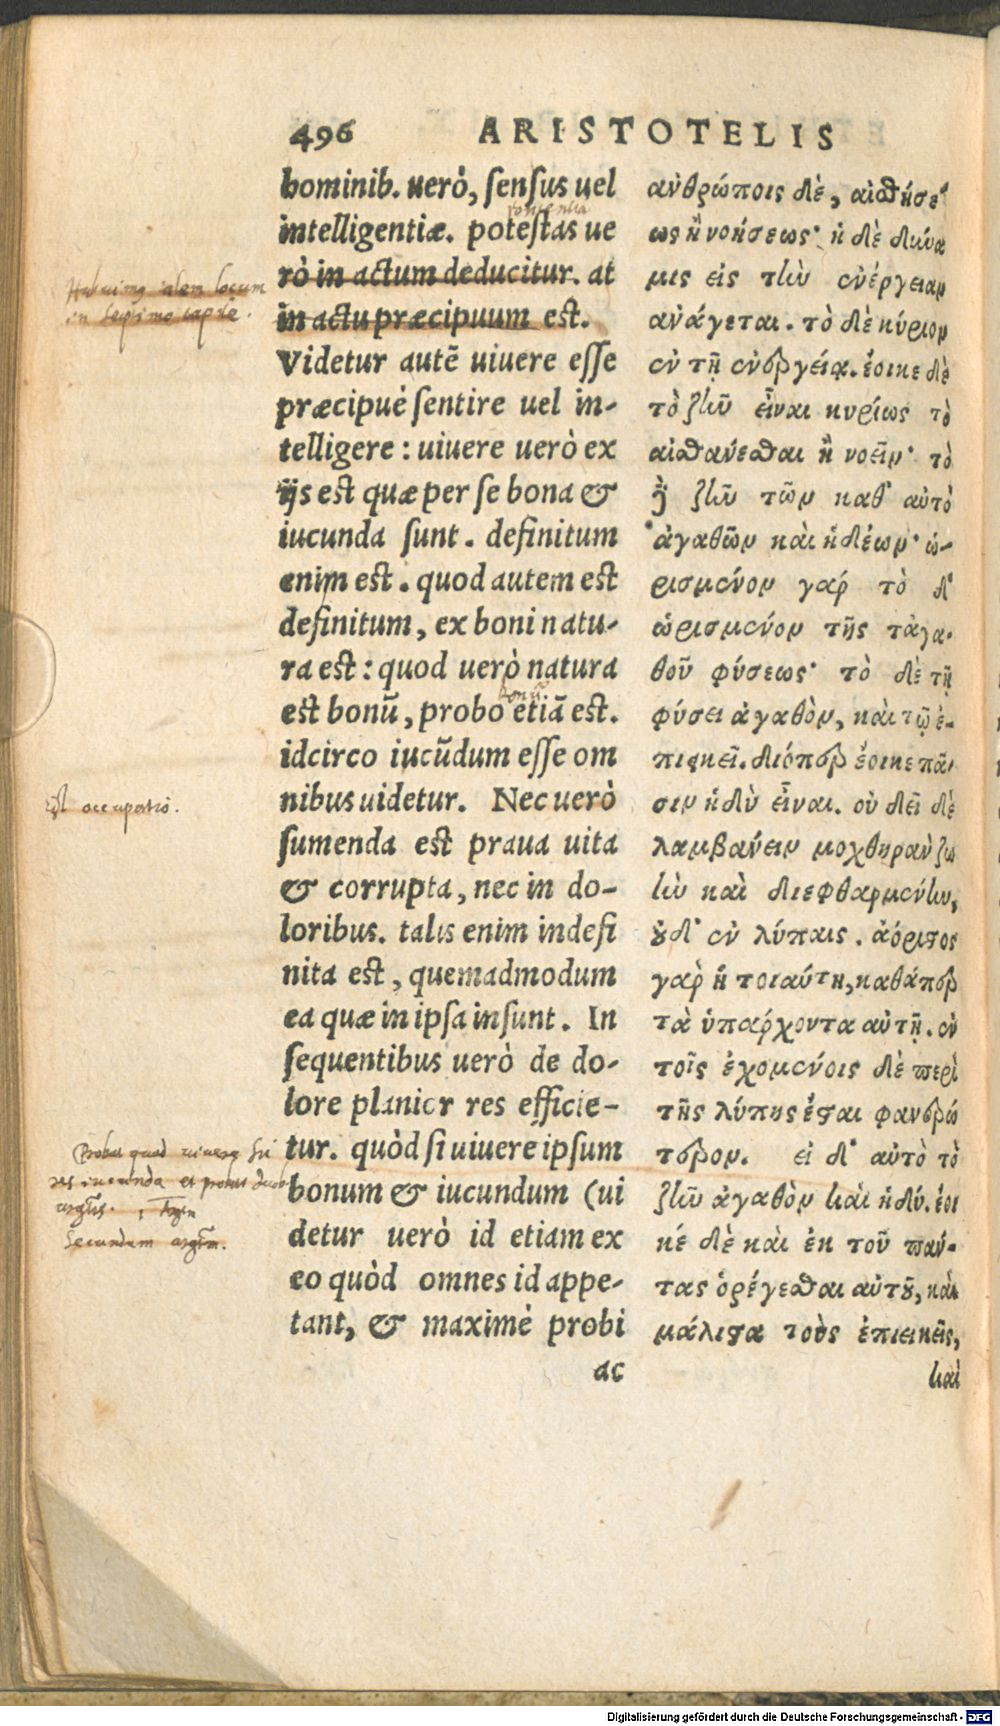 496 ARISTOTELIS
hominib. uerò, sensus uel
intelligentiæ. potestas ue
rò in actum deducitur. at
in actu præcipuum est.
Videtur autē uiuere esse
præcipuè sentire uel in-
telligere: uiuere uerò ex
ijs est quæ per se bona &
iucunda sunt. definitum
enim est. quod autem est
definitum, ex boni natu-
ra est: quod uerò natura
est bonū, probo etiā est.
idcirco iucūdum esse om
nibus uidetur. Nec uerò
sumenda est praua uita
& corrupta, nec in do-
loribus. talis enim indefi
nita est, quemadmodum
ea quæ in ipsa insunt. In
sequentibus uerò de do-
lore planior res efficie-
tur. quòd si uiuere ipsum
bonum & iucundum (ui
detur uerò id etiam ex
eo quòd omnes id appe-
tant, & maximè probi
ac
ἀνθρώποις δὲ, αἰσθήσε
ως ἢ νοήσεως· ἡ δὲ δύνα
μις εἰς τὴν ἐνέργειαν
ἀνάγεται. τὸ δὲ κύριον
ἐν τῇ ἐνεργείᾳ. ἔοικε δὲ
τὸ ζῆν εἶναι κυρίως τὸ
αἰσθάνεσθαι ἢ νοεῖν· τὸ
δὲ ζῆν τῶν καθ' αὑτὸ
ἀγαθῶν καὶ ἡδέων· ὡ-
ρισμένον γάρ τὸ δ'
ὡρισμένον τῆς τἀγα-
θοῦ φύσεως· τὸ δὲ τῇ
φύσει ἀγαθὸν, καὶ τῷ ἐ-
πιεικεῖ. διόπερ ἔοικε πᾶ-
σιν ἡδὺ εἶναι. οὐ δεῖ δὲ
λαμβάνειν μοχθηρὰν ζω
ὴν καὶ διεφθαρμένην,
οὐδ' ἐν λύπαις. ἀόριστος
γὰρ ἡ τοιαύτη, καθάπερ
τὰ ὑπάρχοντα αὐτῇ. ἐν
τοῖς ἐχομένοις δὲ περὶ
τῆς λύπης ἔσται φανερώ
τερον. εἰ δ' αὐτὸ τὸ
ζῆν ἀγαθὸν καὶ ἡδύ. ἔοι
κέ δὲ καὶ ἐκ τοῦ πάν-
τας ὀρέγεσθαι αὐτοῦ, καὶ
μάλιστα τοὺς ἐπιεικεῖς,
καὶ
potentia
bonū
locum
in septimo
Est occupatio.
Probat quod
iucunda et
Secundum argūm.
Digitalisierung gefördert durch die Deutsche Forschungsgemeinschaft - DFG